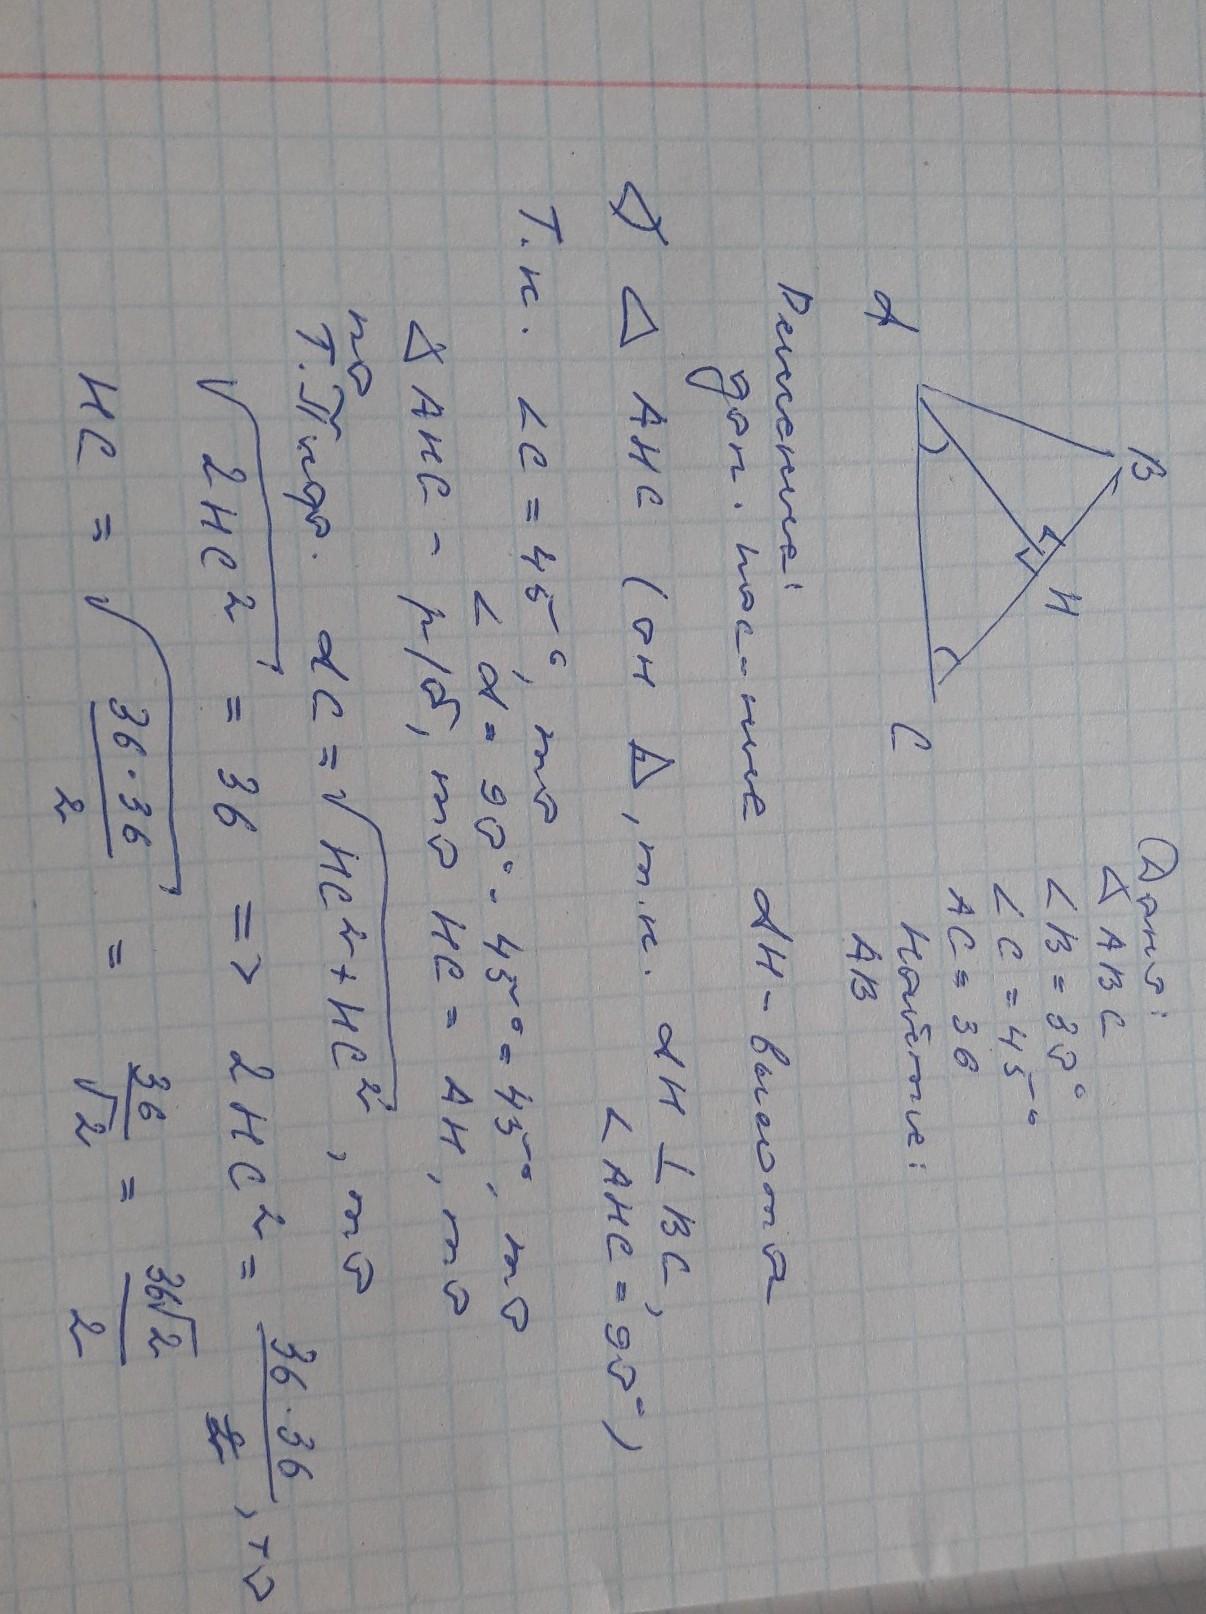 Дано:
△ ABC
∠B = 30°
∠C = 45°
AC = 36
Найти:
AB
B
H
A
C
Решение:
доп. пос-ние AH - высота
△ AHC (он △, т.к. AH ⊥ BC,
∠AHC = 90°)
Т.к. ∠C = 45°, то
∠A = 90° - 45° = 45°, то
△ AHC - р/б, то HC = AH, то
по
Т. Пифо. AC = √HC² + HC², то
√2HC² = 36 => 2HC² = 36 · 36, то
HC = √36·36/2 = 36/√2 = 36√2/2